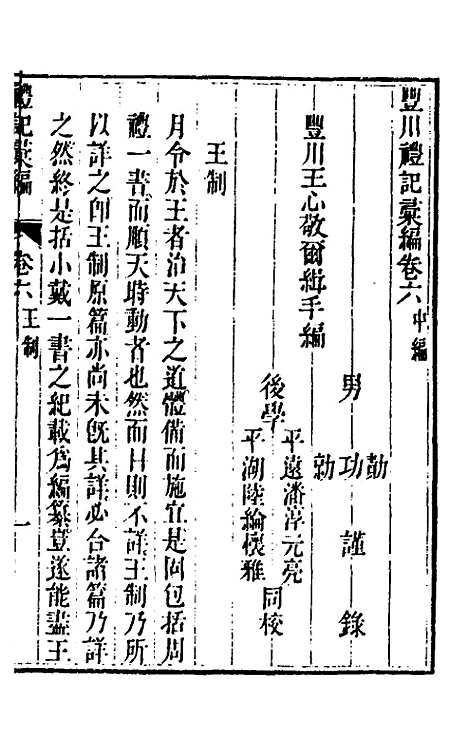 豐川禮記彙編卷六 中編
豐川王心敬爾緝手編
男 勍功勋 謹錄
後學 平遠潘淳元亮 平湖陸綸懷雅 同校
王制
月令於王者治天下之道體備而施宜是固包括周
禮一書而順天時動者也然而目則不詳王制乃所
以詳之卽王制原篇亦尚未旣其詳必合諸篇乃詳
之然終是括小戴一書之紀載爲編纂豈遂能盡王
禮記彙編 卷六 王制 一